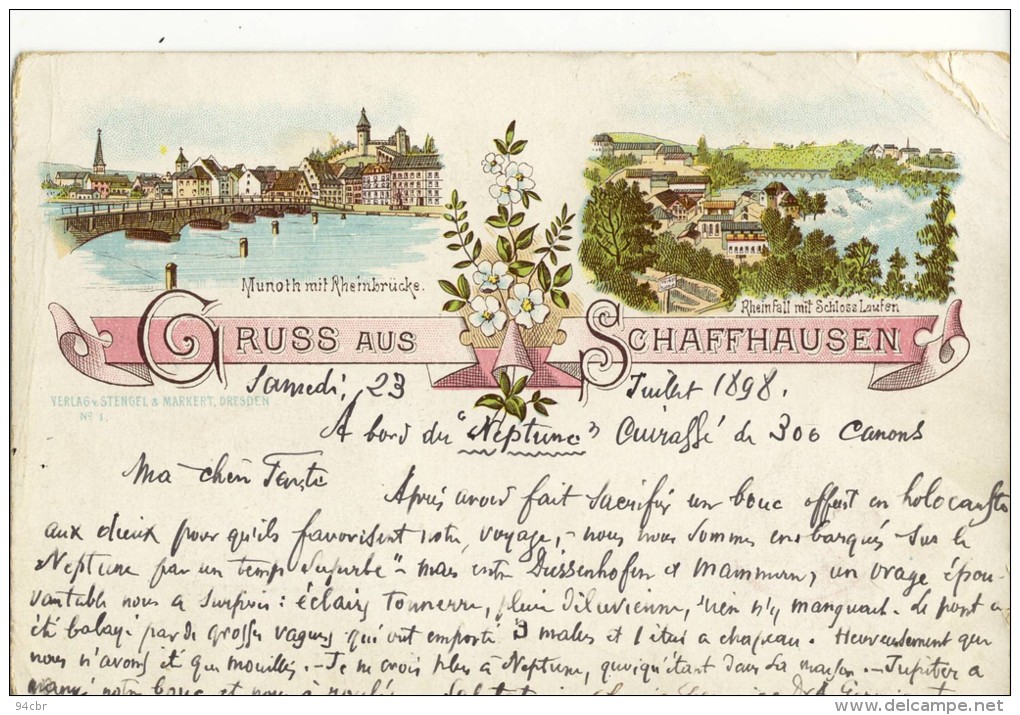 Munoth mit Rheinbrücke.
Rheinfall mit Schloss Laufen
GRUSS AUS SCHAFFHAUSEN
VERLAG v. STENGEL & MARKERT, DRESDEN
No 1.
Samedi, 23 Juillet 1898.
A bord du "Neptune" Cuirassé de 300 canons
Ma chère
Après avoir fait sacrifier un bouc offert en holocauste
aux dieux pour qu'ils favorisent notre voyage, - nous nous sommes embarqués sur le
Neptune par un temps superbe - mais entre Diessenhofen et Mammern, un orage épou-
vantable nous a surpris : éclairs, tonnerre, pluie diluvienne, rien n'y manquait. Le pont a
été balayé par de grosses vagues qui ont emporté 3 malles et 1 étui a chapeau. Heureusement que
nous n'avons été que mouillés. - Je ne crois plus à Neptune, quoiqu'étant dans la maison. - Jupiter a
notre bouc et nous a
94cbr
delcampe.net